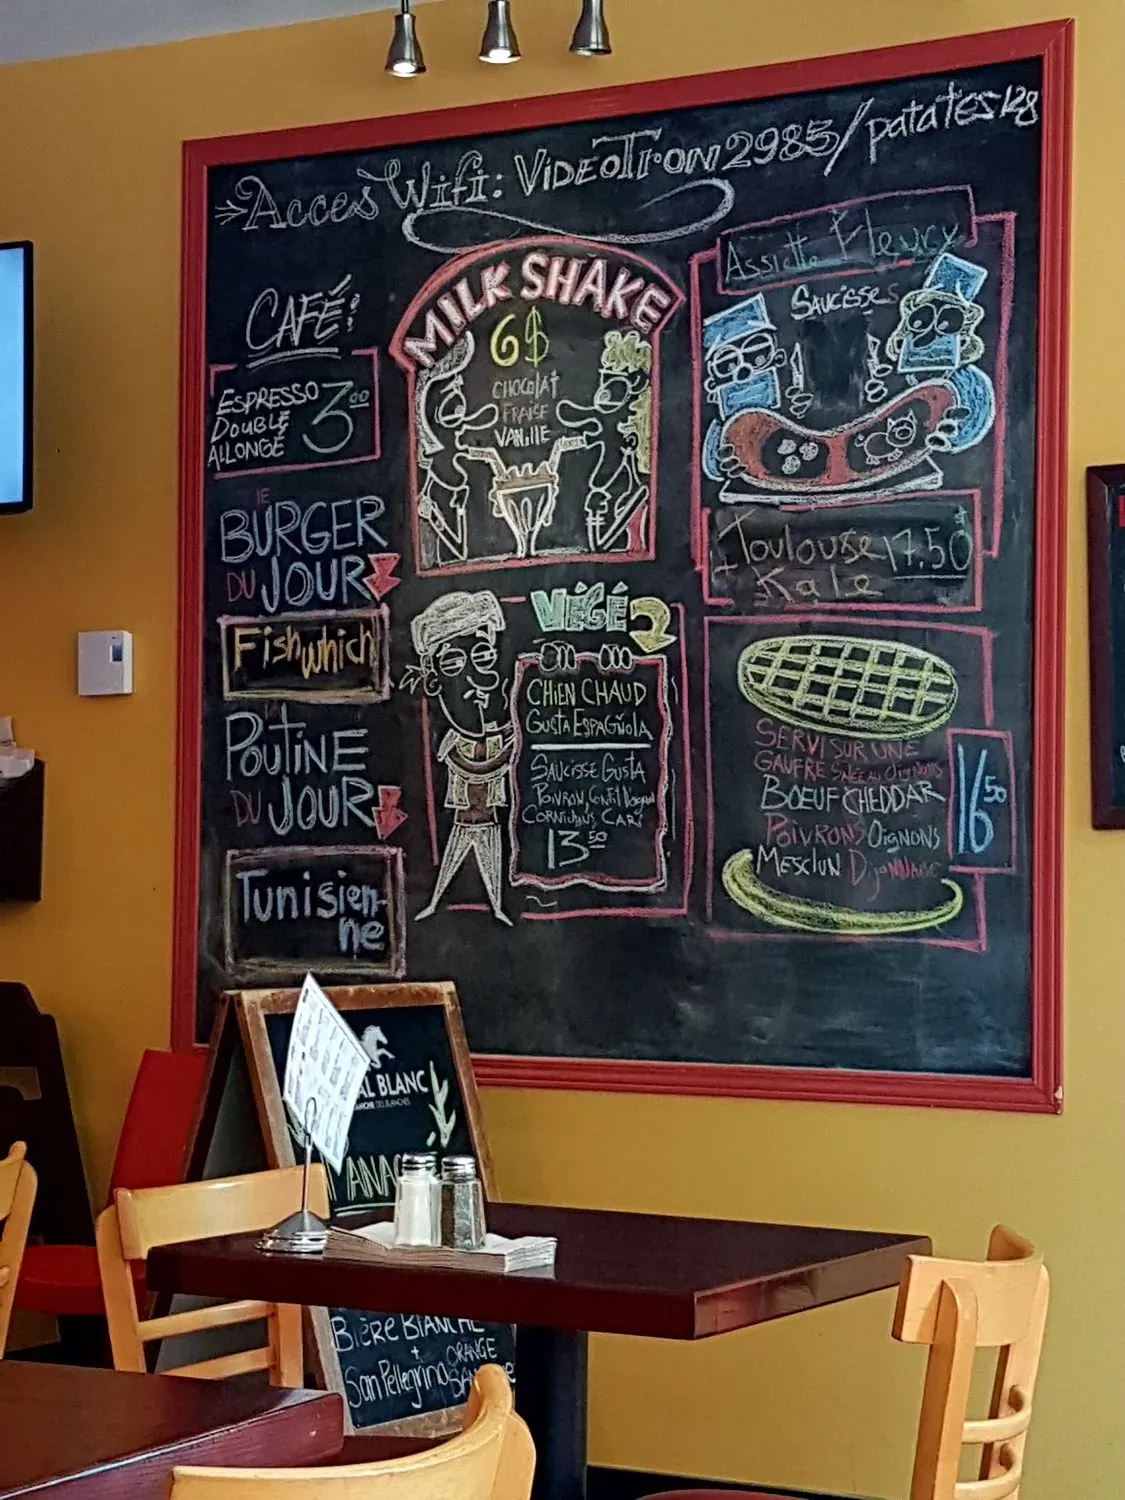 Acces Wifi: VidéoTron 2985/patates128
CAFÉ:
ESPRESSO
DOUBLE
ALLONGÉ
3.00
LE
BURGER
DU JOUR
Fishwhich
POUTINE
DU JOUR
Tunisien-
ne
MILK SHAKE
6$
CHOCOLAT
FRAISE
VANILLE
VÉGÉ
CHIEN CHAUD
GUSTA ESPAGÑOLA
SAUCISSE GUSTA
POIVRON,
CORNICHONS, CARI
13 50
Assiette Fleury
SAUCISSES
Toulouse
Kale
17.50$
SERVI SUR UNE
GAUFRE
BOEUF CHEDDAR
POIVRONS OIGNONS
MESCLUN DIJONNAISE
16 50
AL BLANC
BIÈRE BLANCHE
+
San Pellegrino ORANGE